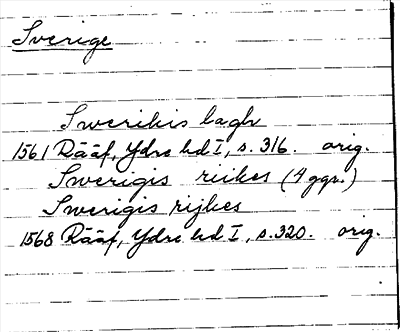 Sverige
Swerikis lagh
1561 Rääf, Ydre hd I, s. 316. orig.
Swerigis riikes (4 ggr.)
Swerigis rijkes
1568 Rääf, Ydre hd I, s. 320. orig.